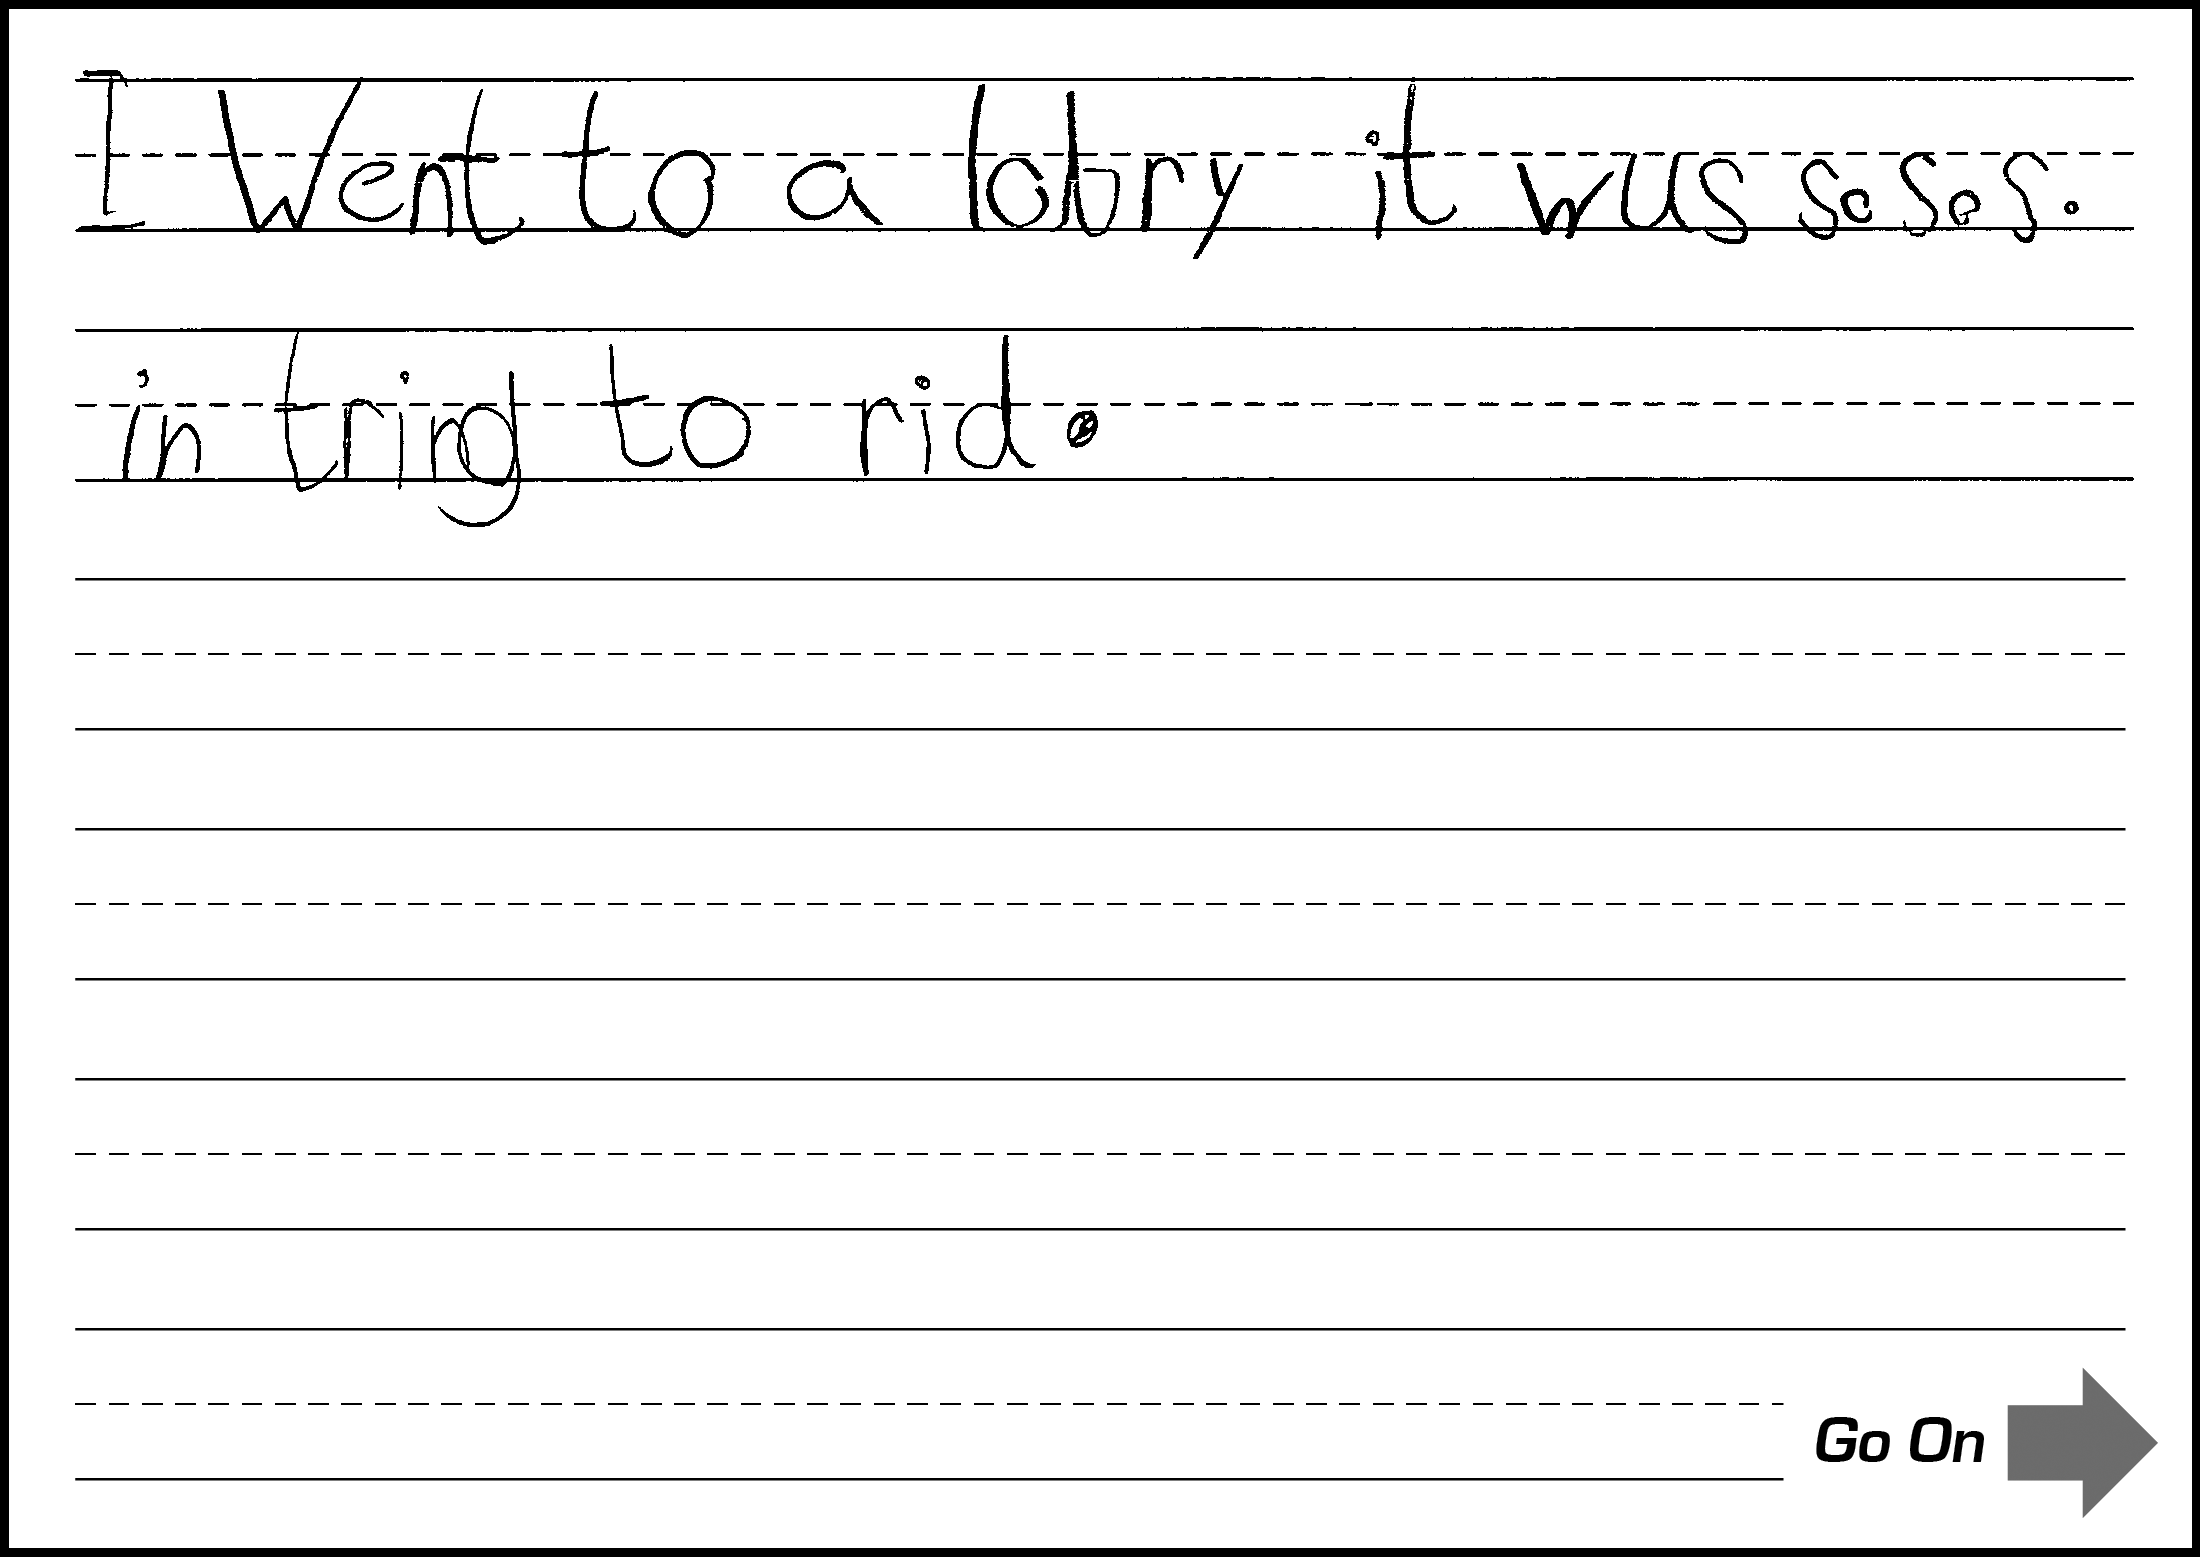 I Went to a lobry it wus sosos.
in tring to rid.
Go On